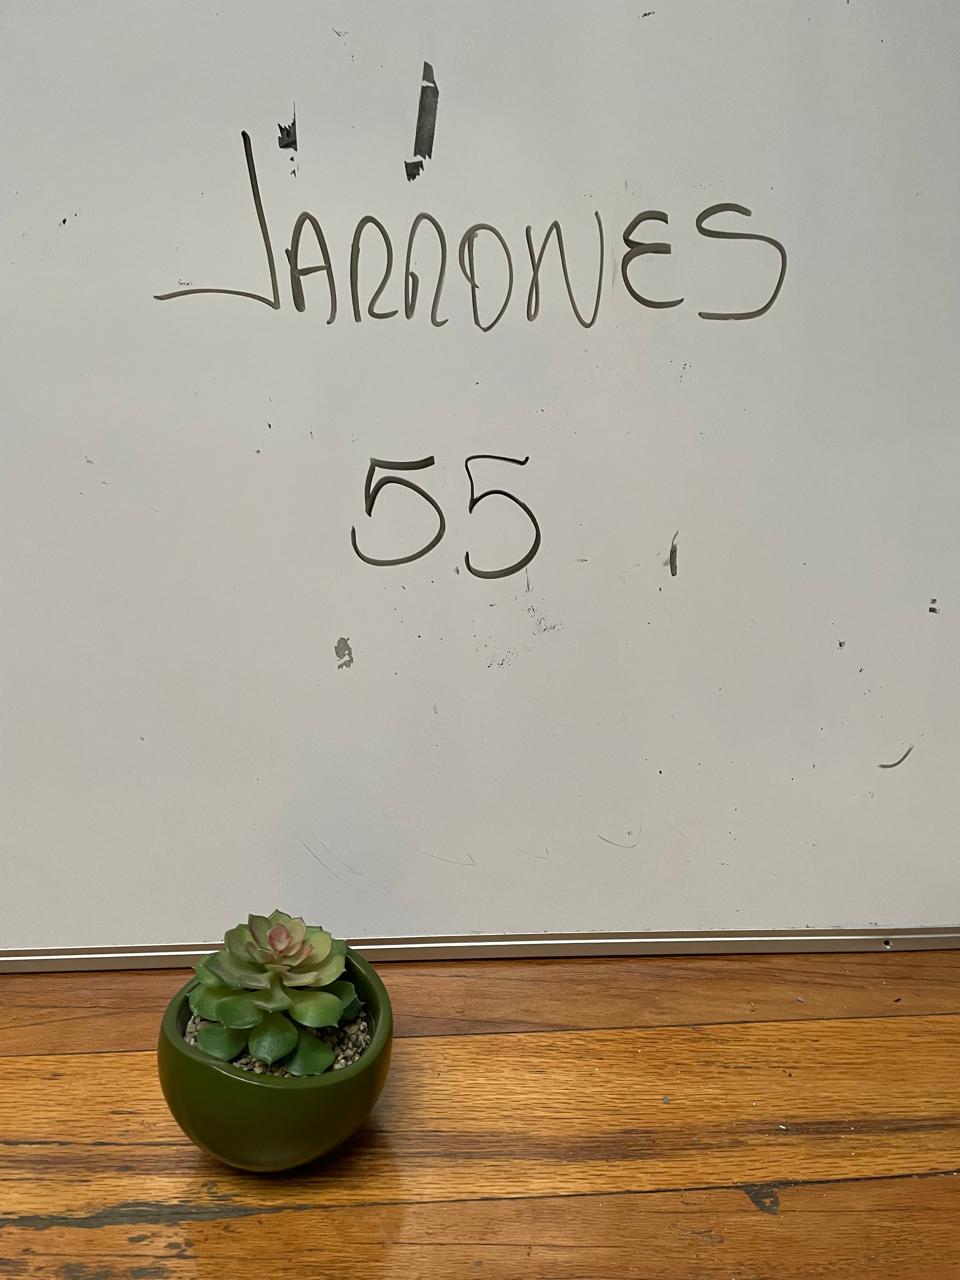 JARRONES
55